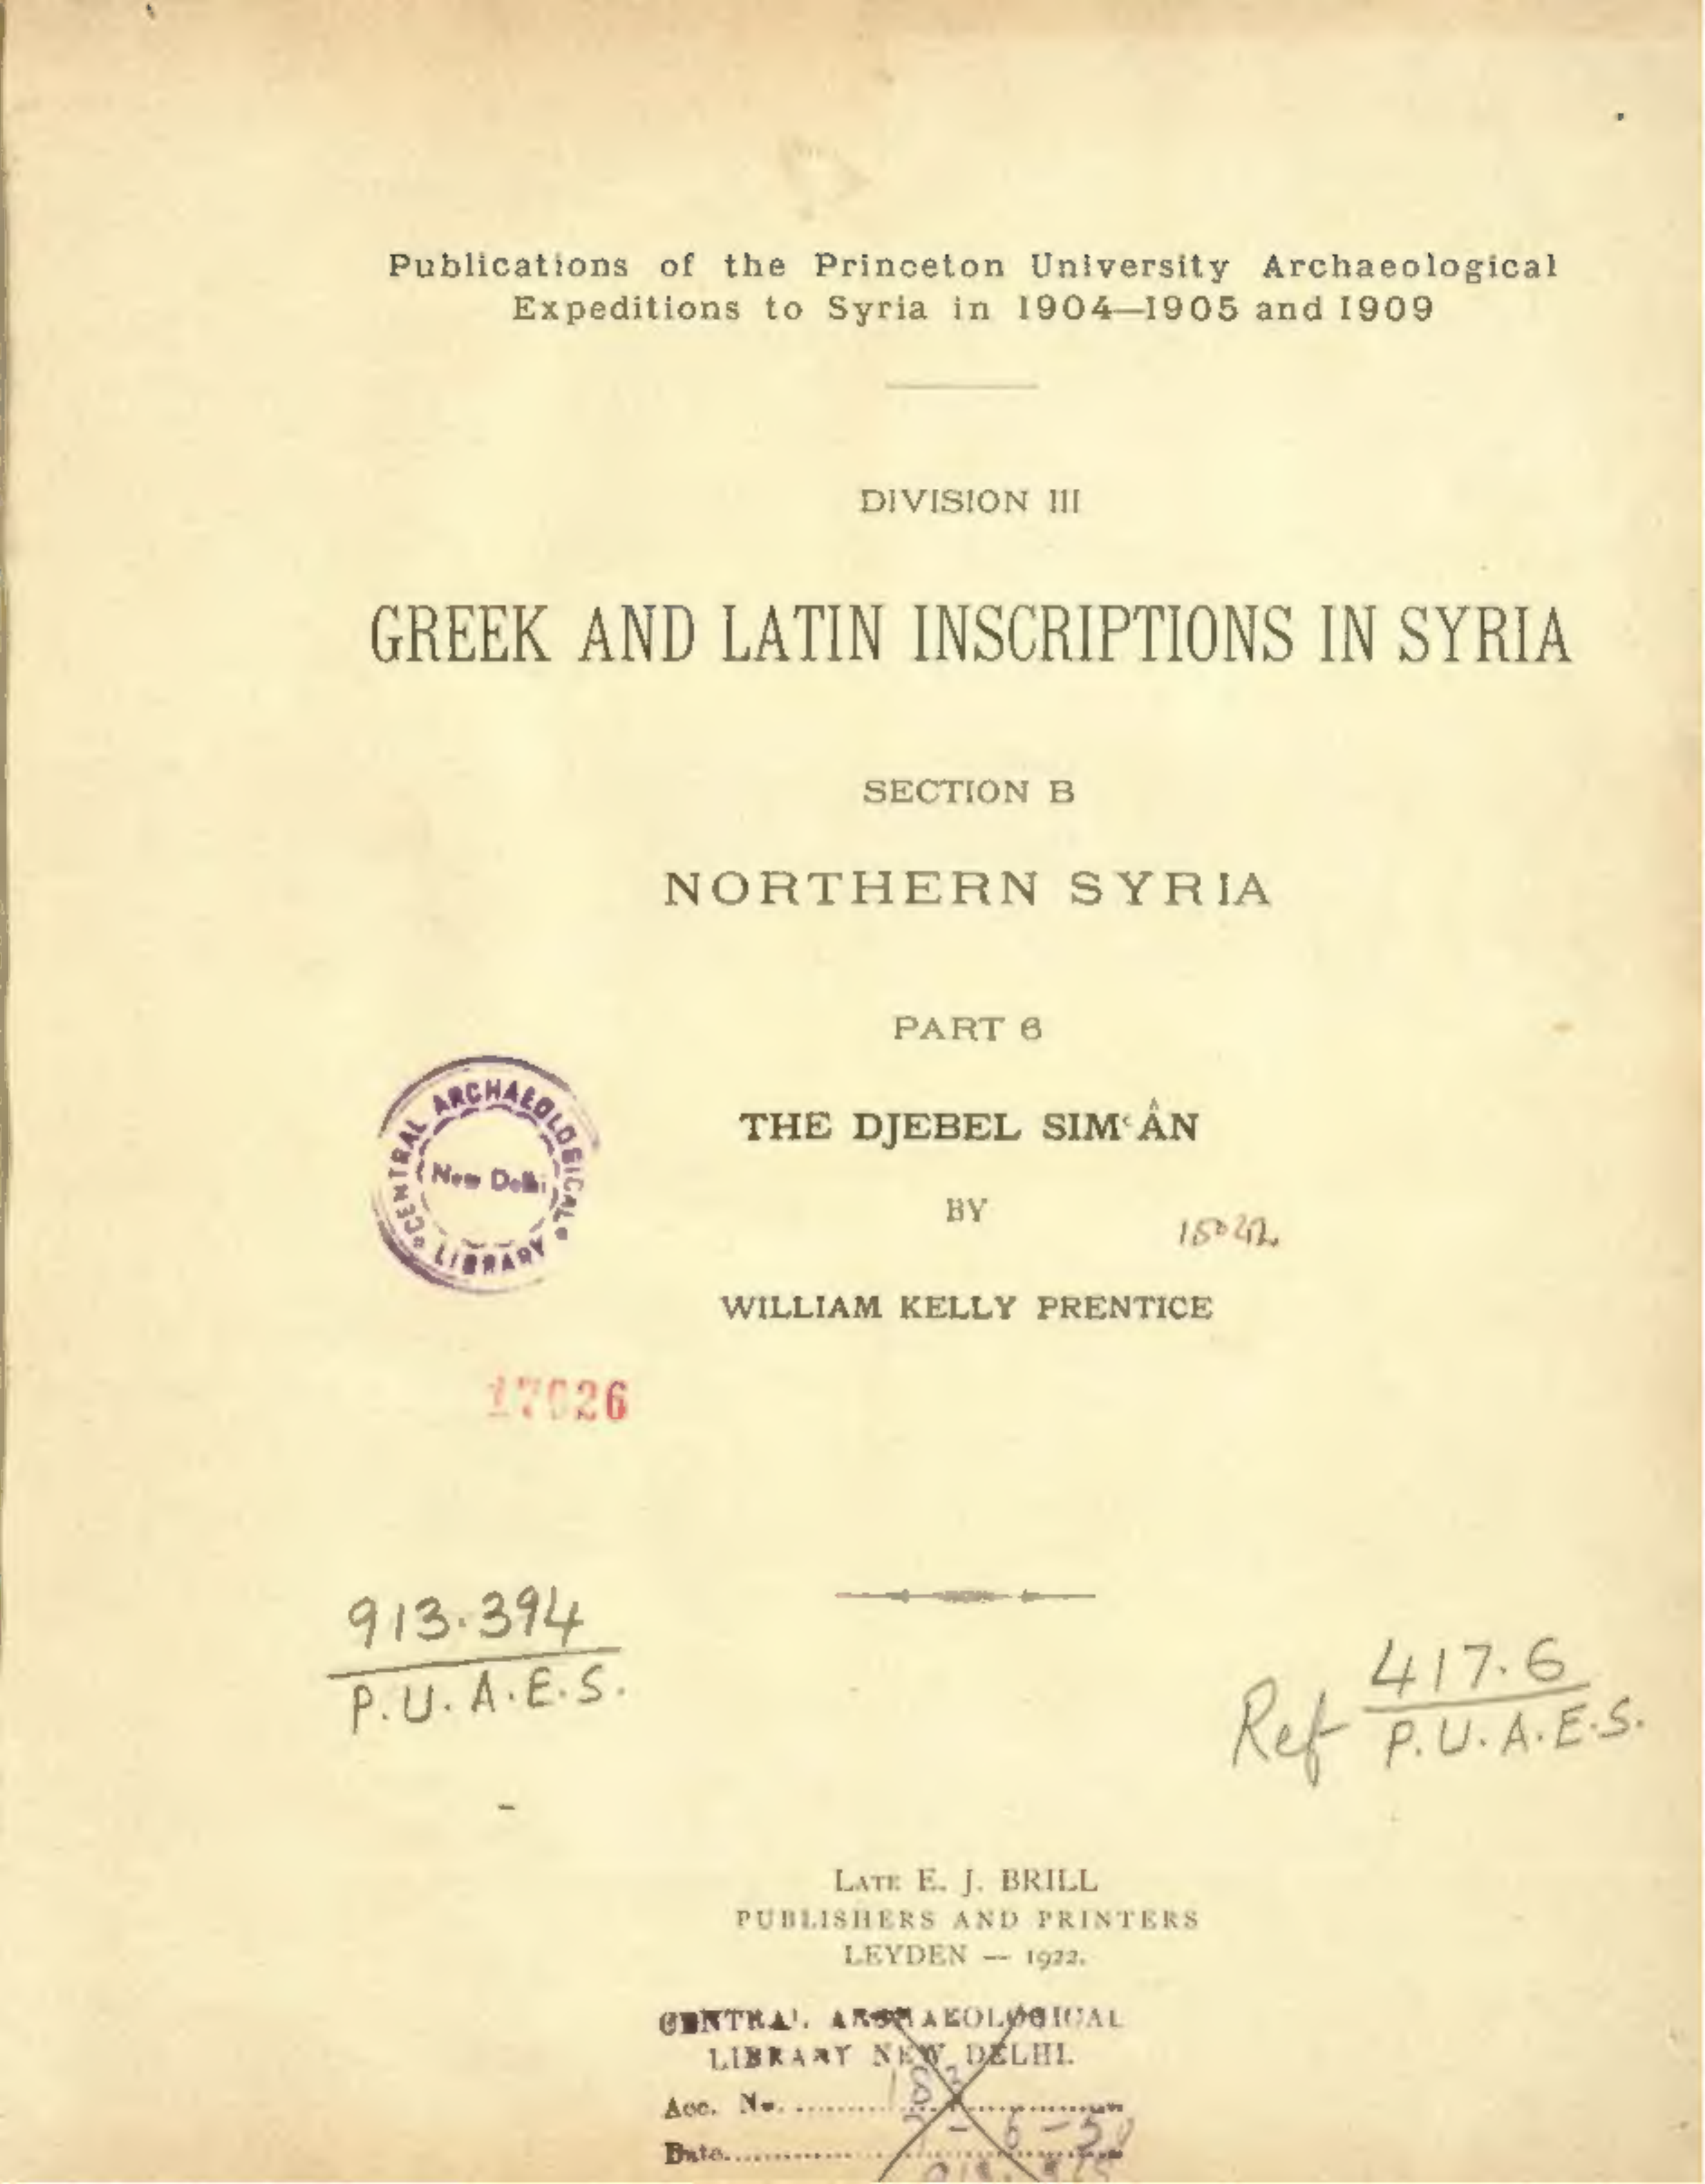 Publications of the Princeton University Archaeological
Expeditions to Syria in 1904—1905 and 1909
DIVISION III
GREEK AND LATIN INSCRIPTIONS IN SYRIA
SECTION B
NORTHERN SYRIA
PART 6
THE DJEBEL SIMʿÂN
BY
WILLIAM KELLY PRENTICE
CENTRAL ARCHAEOLOGICAL LIBRARY
New Delhi
913.394
P.U.A.E.S.
Ref 417.6
P.U.A.E.S.
LATE E. J. BRILL
PUBLISHERS AND PRINTERS
LEYDEN — 1922.
CENTRAL ARCHAEOLOGICAL
LIBRARY NEW DELHI.
Acc. No.
Date